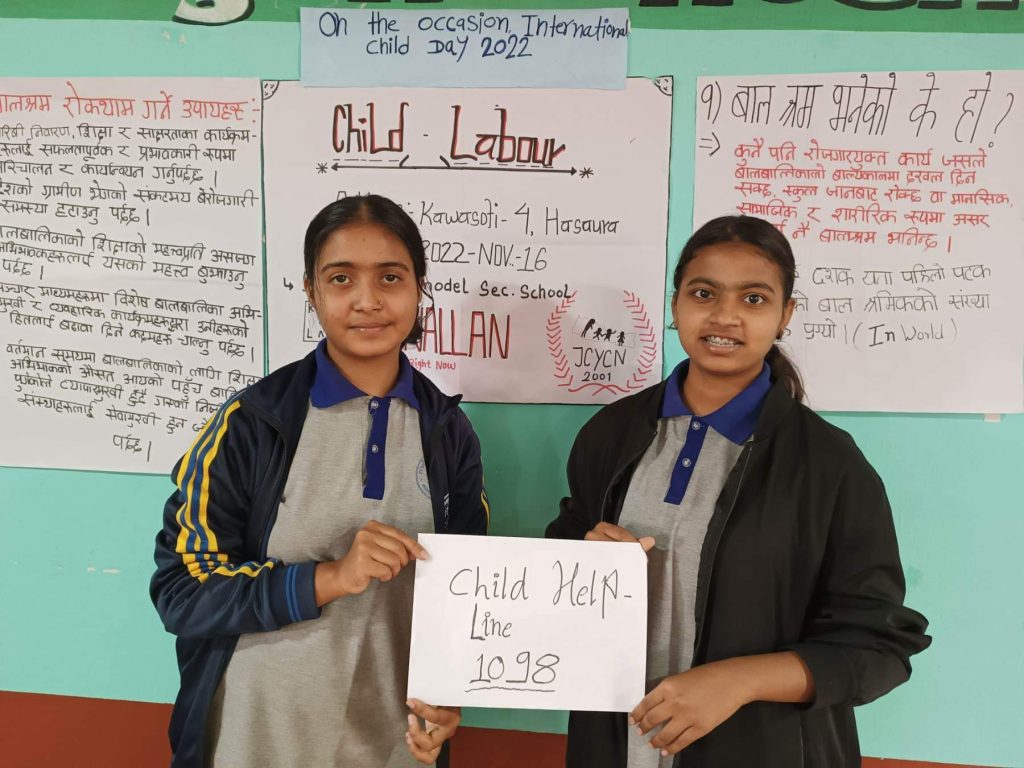 On the occasion, International
child Day 2022
बालश्रम रोकथाम गर्ने उपायहरू :-
गरिबी निवारण, शिक्षा र साक्षरताका कार्यक्रम-
हरूलाई सफलतापूर्वक र प्रभावकारी रूपमा
परिचालन र कार्यान्वयन गर्नुपर्दछ ।
देशको ग्रामीण क्षेत्रको संकटमय बेरोजगारी
समस्या हटाउनु पर्दछ ।
बालबालिकाको शिक्षाको महत्त्वप्रति असक्षम
अभिभावकहरूलाई यसको महत्त्व बुझाउनु
पर्दछ ।
सञ्चार माध्यमहरूमा विशेष बालबालिका अभि-
मुखी र व्यवहारिक कार्यक्रमहरूद्वारा उनीहरूको
हितलाई बढावा दिने कदमहरू चाल्नु पर्दछ ।
वर्तमान समयमा बालबालिकाको लागि
अभिभावकको औसत आयको पहुँच
पुगेकोले व्यापारमुखी हुँदै गएका
संस्थाहरूलाई सेवामुखी हुन
पर्दछ ।
Child - Labour
Kawasoti - 4, Hasaura
2022-NOV.-16
model Sec. School
ALLAN
Right Now
JCYCN
2001
१) बाल श्रम भनेको के हो ?
=> कुनै पनि रोजगारयुक्त कार्य जसले
बालबालिकाको बाल्यकालमा दखल दिन
सक्छ, स्कुल जानबाट रोक्छ वा मानसिक,
सामाजिक र शारीरिक रूपमा असर
नै बालश्रम भनिन्छ ।
दशक यता पहिलो पटक
बाल श्रमिकको संख्या
पुग्यो । (In World)
Child Help-
Line
1098